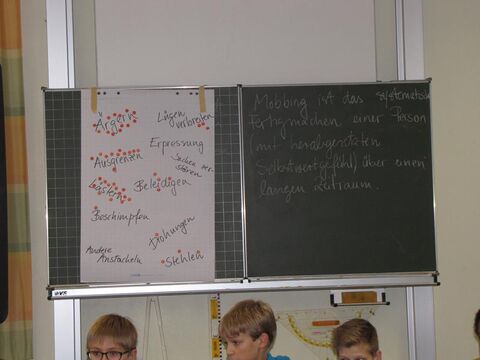 Ärgern
Lügen
verbreiten
Erpressung
Ausgrenzen
Sachen zer-
stören
Lästern
Beleidigen
Beschimpfen
Drohungen
Andere
Anstacheln
Stehlen
Mobbing ist das systematisch
Fertigmachen einer Person
(mit herabgesetzten
Selbstwertgefühl) über einen
langen Zeitraum.